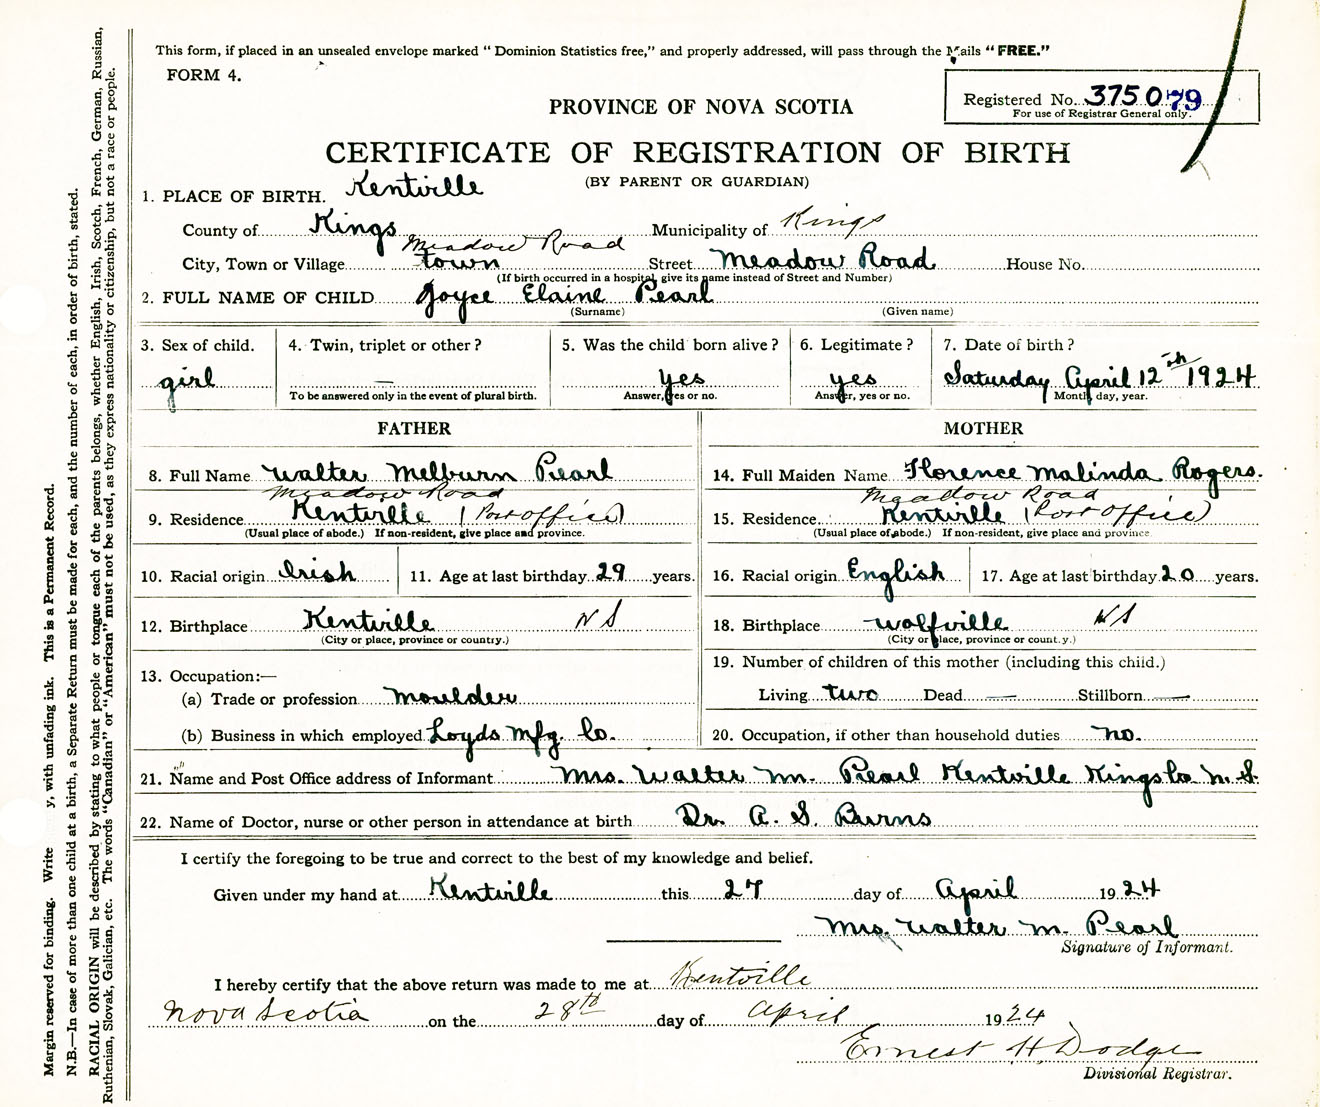 This form, if placed in an unsealed envelope marked "Dominion Statistics free," and properly addressed, will pass through the Mails "FREE."
FORM 4.
Registered No. 3750 79
For use of Registrar General only.
PROVINCE OF NOVA SCOTIA
CERTIFICATE OF REGISTRATION OF BIRTH
(BY PARENT OR GUARDIAN)
1. PLACE OF BIRTH. Kentville
County of Kings Municipality of Kings
Meadow Road
City, Town or Village town Street Meadow Road House No.
(If birth occurred in a hospital, give its name instead of Street and Number)
2. FULL NAME OF CHILD Joyce Elaine Pearl
(Surname) (Given name)
3. Sex of child. 4. Twin, triplet or other? 5. Was the child born alive? 6. Legitimate? 7. Date of birth?
girl — yes yes Saturday April 12th 1924
To be answered only in the event of plural birth. Answer, yes or no. Answer, yes or no. Month, day, year.
FATHER MOTHER
8. Full Name Walter Melburn Pearl 14. Full Maiden Name Florence Malinda Rogers.
Meadow Road Meadow Road
9. Residence Kentville (Post office) 15. Residence Kentville (Post office)
(Usual place of abode.) If non-resident, give place and province. (Usual place of abode.) If non-resident, give place and province.
10. Racial origin Irish 11. Age at last birthday 29 years. 16. Racial origin English 17. Age at last birthday 20 years.
12. Birthplace Kentville N S 18. Birthplace wolfville N S
(City or place, province or country.) (City or place, province or country.)
19. Number of children of this mother (including this child.)
13. Occupation:—
(a) Trade or profession moulder Living two Dead — Stillborn —
(b) Business in which employed Loyds Mfg. Co. 20. Occupation, if other than household duties no.
21. Name and Post Office address of Informant Mrs. Walter M. Pearl Kentville Kings Co N.S.
22. Name of Doctor, nurse or other person in attendance at birth Dr. A. S. Burns
I certify the foregoing to be true and correct to the best of my knowledge and belief.
Given under my hand at Kentville this 27 day of April 1924
Mrs. Walter M. Pearl
Signature of Informant.
I hereby certify that the above return was made to me at Kentville
Nova Scotia on the 28th day of April 1924
Ernest H. Dodge
Divisional Registrar.
Margin reserved for binding. Write y, with unfading ink. This is a Permanent Record.
N.B.—In case of more than one child at a birth, a Separate Return must be made for each, and the number of each, in order of birth, stated.
RACIAL ORIGIN will be described by stating to what people or tongue each of the parents belongs, whether English, Irish, Scotch, French, German, Russian,
Ruthenian, Slovak, Galician, etc. The words "Canadian" or "American" must not be used, as they express nationality or citizenship, but not a race or people.